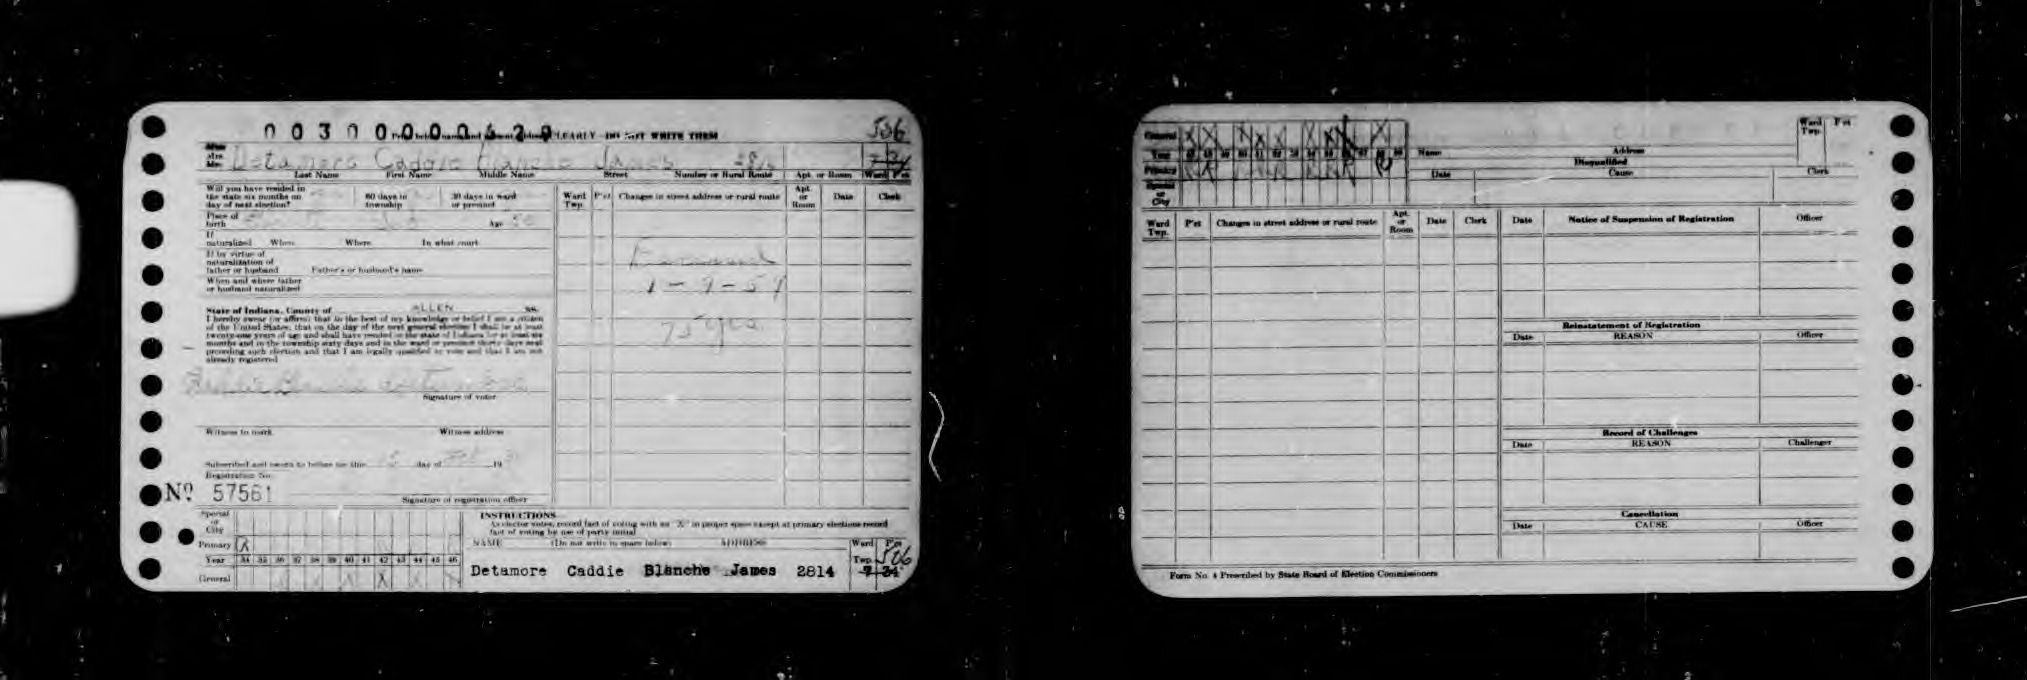 00300000620
CLEARLY — DO NOT WRITE THEM
506
Miss
Mrs.
Mr.
Detamore Caddie Blanche James 2814
7 34
Last Name First Name Middle Name Street Number or Rural Route Apt. or Room Ward P'ct
Will you have resided in
the state six months on
day of next election?
60 days in
township
30 days in ward
or precinct
Place of
birth
Age
If
naturalized When Where In what court
If by virtue of
naturalization of
father or husband Father's or husband's name
When and where father
or husband naturalized
State of Indiana, County of ALLEN ss.
I hereby swear (or affirm) that to the best of my knowledge or belief I am a citizen
of the United States; that on the day of the next general election I shall be at least
twenty-one years of age and shall have resided in the state of Indiana for at least six
months and in the township sixty days and in the ward or precinct thirty days next
preceding such election and that I am legally qualified to vote and that I am not
already registered
Caddie Blanche Detamore
Signature of voter
Witness to mark Witness address
Subscribed and sworn to before me this 5 day of 19
Registration No.
Nº 57561
Signature of registration officer
Ward
Twp.
P'ct
Changes in street address or rural route
Apt.
or
Room
Date
Clerk
Deceased
1-9-59
75 yrs
Special
or
City
Primary X
Year 34 35 36 37 38 39 40 41 42 43 44 45 46
General X X X X
INSTRUCTIONS
As elector votes, record fact of voting with an "X" in proper space except at primary elections record
fact of voting by use of party initial
NAME (Do not write in space below) ADDRESS
Ward P'ct
Twp. 506
Detamore Caddie Blanche James 2814 7-34
General X X X X X X X X X
Year
Primary
Special
or
City
Name Address
Disqualified
Date Cause Clerk
Ward
Twp.
P'ct
Ward
Twp.
P'ct
Changes in street address or rural route
Apt.
or
Room
Date
Clerk
Date Notice of Suspension of Registration Officer
Reinstatement of Registration
Date REASON Officer
Record of Challenges
Date REASON Challenger
Cancellation
Date CAUSE Officer
Form No. 4 Prescribed by State Board of Election Commissioners